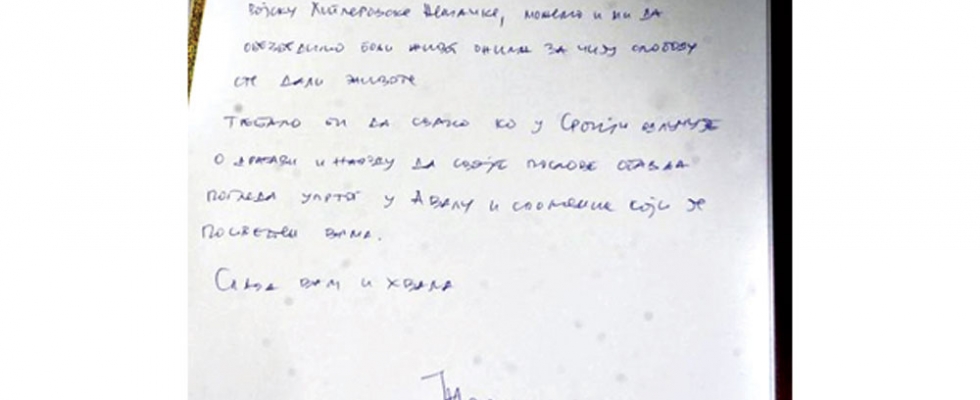 војску Хитлеровске Немачке, можемо и ми да
обезбедимо бољи живот онима за чију слободу
сте дали животе
Требало би да свако ко у Србији одлучује
о држави и народу да своје послове обавља
погледа упртог у Авалу и споменик који је
посвећен вама.
Слава вам и хвала